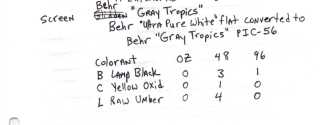 Behr
SCREEN "GRAY TROPICS"
Behr "Ultra Pure White" flat converted to
Behr "GRAY TROPICS" PIC-56
Colorant OZ 48 96
B LAMP BLACK 0 3 1
C Yellow Oxid 0 1 0
L RAW UMBER 0 4 0